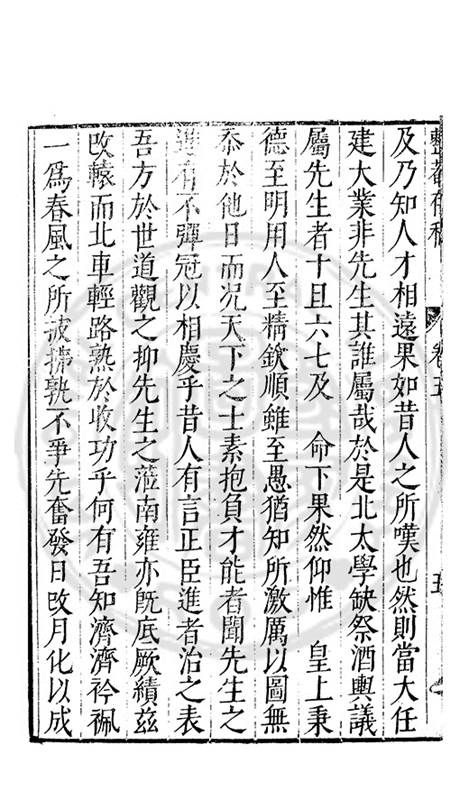 整菴存稿 卷五 五
及乃知人才相遠果如昔人之所嘆也然則當大任
建大業非先生其誰屬哉於是北太學缺祭酒輿議
屬先生者十且六七及　命下果然仰惟　皇上秉
德至明用人至精欽順雖至愚猶知所激厲以圖無
忝於他日而况天下之士素抱負才能者聞先生之
進有不彈冠以相慶乎昔人有言正臣進者治之表
吾方於世道觀之抑先生之蒞南雍亦旣底厥績兹
攺轅而北車輕路熟於收功乎何有吾知濟濟衿佩
一爲春風之所披拂孰不爭先奮發日攺月化以成